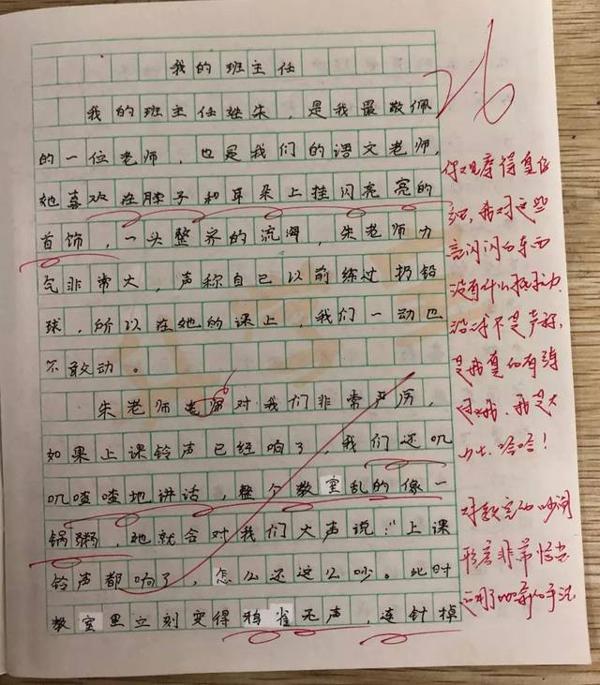 我的班主任
26
我的班主任姓朱，是我最敬佩
的一位老师，也是我们的语文老师，
她喜欢在脖子和耳朵上挂闪亮亮的
首饰，一头整齐的流海，朱老师力
气非常大，声称自己以前练过扔铅
球，所以在她的课上，我们一动也
不敢动。
朱老师老师对我们非常严厉，
如果上课铃声已经响了，我们还叽
叽喳喳地讲话，整个教室乱的像一
锅粥，她就会对我们大声说："上课
铃声都响了，怎么还这么吵。此时
教室里立刻变得鸦雀无声，连针掉
你观察得真仔
细，我对这些
亮闪闪的东西
没有什么抵抗力
没，我不是声称，
是我真的有练
过，我是大
力士，哈哈！
对教室的吵闹
形容非常恰当
运用了比喻的手法